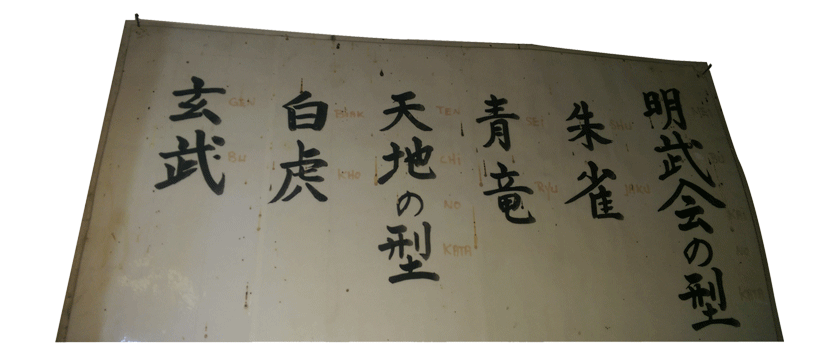 明武会の型
朱雀
SHU
青竜
SEI
RYU
天地の型
TEN
CHI
NO
KATA
白虎
KHO
玄武
GEN
BU